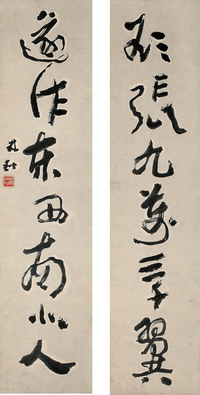 欲張九萬三千翼
遂作東西南北人